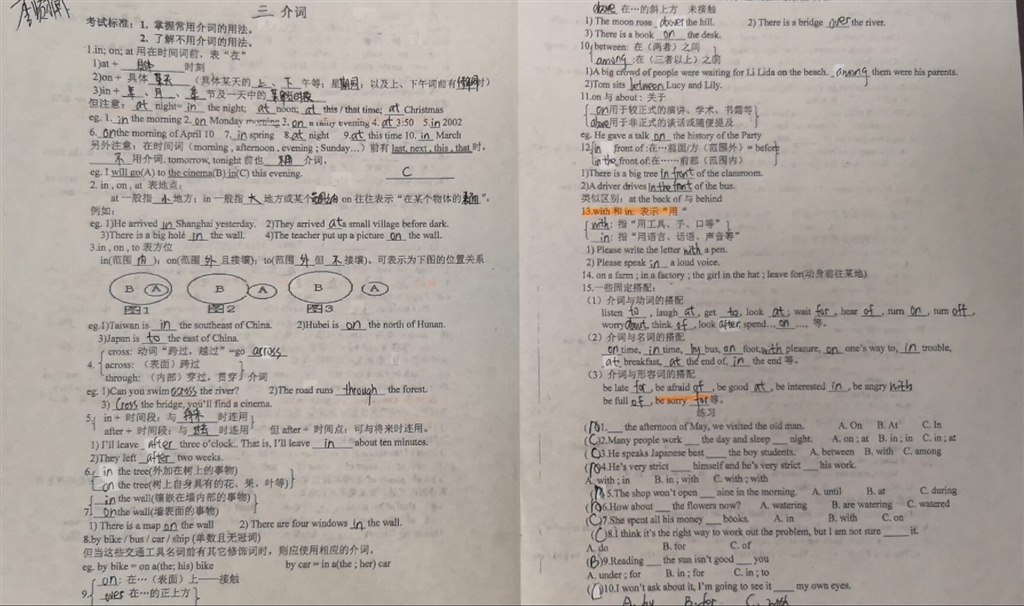 三 介词
考试标准：1. 掌握常用介词的用法。
2. 了解不用介词的用法。
1.in; on; at 用在时间词前，表“在”
1)at + 时刻
2)on + 具体 某天 (具体某天的 上、下 午等；星期；以及上、下午词前有修饰词时)
3)in + 年、月、季 节及一天中的
但注意：at night= in the night; at noon; at this / that time; at Christmas
eg. 1. in the morning 2. on Monday morning 3. on a rainy evening 4. at 3:50 5. in 2002
6. on the morning of April 10 7. in spring 8. at night 9. at this time 10. in March
另外注意：在时间词(morning , afternoon , evening ; Sunday…) 前有 last, next , this , that 时，
不 用介词. tomorrow, tonight 前也 介词。
eg. I will go(A) to the cinema(B) in(C) this evening. C
2. in , on , at 表地点：
at 一般指 小 地方；in 一般指 大 地方或某个 on 往往表示“在某个物体的 表面”。
例如：
eg. 1)He arrived in Shanghai yesterday. 2)They arrived at a small village before dark.
3)There is a big hole in the wall. 4)The teacher put up a picture on the wall.
3.in , on , to 表方位
in(范围 内 )；on(范围 外 且接壤)；to(范围 外 但 不 接壤)。可表示为下图的位置关系
B A B A B A
图1 图2 图3
eg.1)Taiwan is in the southeast of China. 2)Hubei is on the north of Hunan.
3)Japan is to the east of China.
cross: 动词“跨过，越过”=go across
4. across: (表面) 跨过
through: (内部) 穿过，贯穿 介词
eg. 1)Can you swim across the river? 2)The road runs through the forest.
3) Cross the bridge, you'll find a cinema.
5. in + 时间段：与 将来 时连用
after + 时间段：与 过去 时连用 但 after + 时间点：可与将来时连用。
1) I'll leave after three o'clock. That is, I'll leave in about ten minutes.
2)They left after two weeks.
6. in the tree(外加在树上的事物)
on the tree(树上自身具有的花、果、叶等)
in the wall(镶嵌在墙内部的事物)
7. on the wall(墙表面的事物)
1) There is a map on the wall 2) There are four windows in the wall.
8.by bike / bus / car / ship (单数且无冠词)
但当这些交通工具名词前有其它修饰词时，则应使用相应的介词。
eg. by bike = on a(the; his) bike by car = in a(the ; her) car
on: 在…(表面) 上——接触
9. over 在…的正上方
above 在…的斜上方 未接触
1) The moon rose above the hill. 2) There is a bridge over the river.
3) There is a book on the desk.
10. between: 在 (两者) 之间
among: 在 (三者以上) 之间
1)A big crowd of people were waiting for Li Lida on the beach. among them were his parents.
2)Tom sits between Lucy and Lily.
11.on 与 about：关于
on 用于较正式的演讲、学术、书籍等
用于非正式的谈话或随便提及
eg. He gave a talk on the history of the Party
12. in front of :在…前面/方 (范围外) = before
in the front of:在……前部 (范围内)
1)There is a big tree in front of the classroom.
2)A driver drives in the front of the bus.
类似区别：at the back of 与 behind
13.with 和 in: 表示“用“
with: 指“用工具、手、口等”
in: 指“用语言，话语、声音等”
1) Please write the letter with a pen.
2) Please speak in a loud voice.
14. on a farm ; in a factory ; the girl in the hat ; leave for(动身前往某地)
15.一些固定搭配：
(1) 介词与动词的搭配
listen to , laugh at , get to , look at ; wait for , hear of , turn on , turn off ,
worry about , think of , look after , spend… on …, 等。
(2) 介词与名词的搭配
on time, in time, by bus, on foot, with pleasure, on one's way to, in trouble,
at breakfast, at the end of, in the end 等.
(3) 介词与形容词的搭配
be late for , be afraid of , be good at , be interested in , be angry with
be full of , be sorry for 等。
练习
1. ___ the afternoon of May, we visited the old man. A. On B. At C. In
2.Many people work ___ the day and sleep ___ night. A. on ; at B. in ; in C. in ; at
3.He speaks Japanese best ___ the boy students. A. between B. with C. among
4.He's very strict ___ himself and he's very strict ___ his work.
A. with ; in B. in ; with C. with ; with
5.The shop won't open ___ nine in the morning. A. until B. at C. during
6.How about ___ the flowers now? A. watering B. are watering C. watered
(C)7.She spent all his money ___ books. A. in B. with C. on
8.I think it's the right way to work out the problem, but I am not sure ___ it.
A. do B. for C. of
(B)9.Reading ___ the sun isn't good ___ you
A. under ; for B. in ; for C. in ; to
10.I won't ask about it, I'm going to see it ___ my own eyes.
A. by B. for C. with